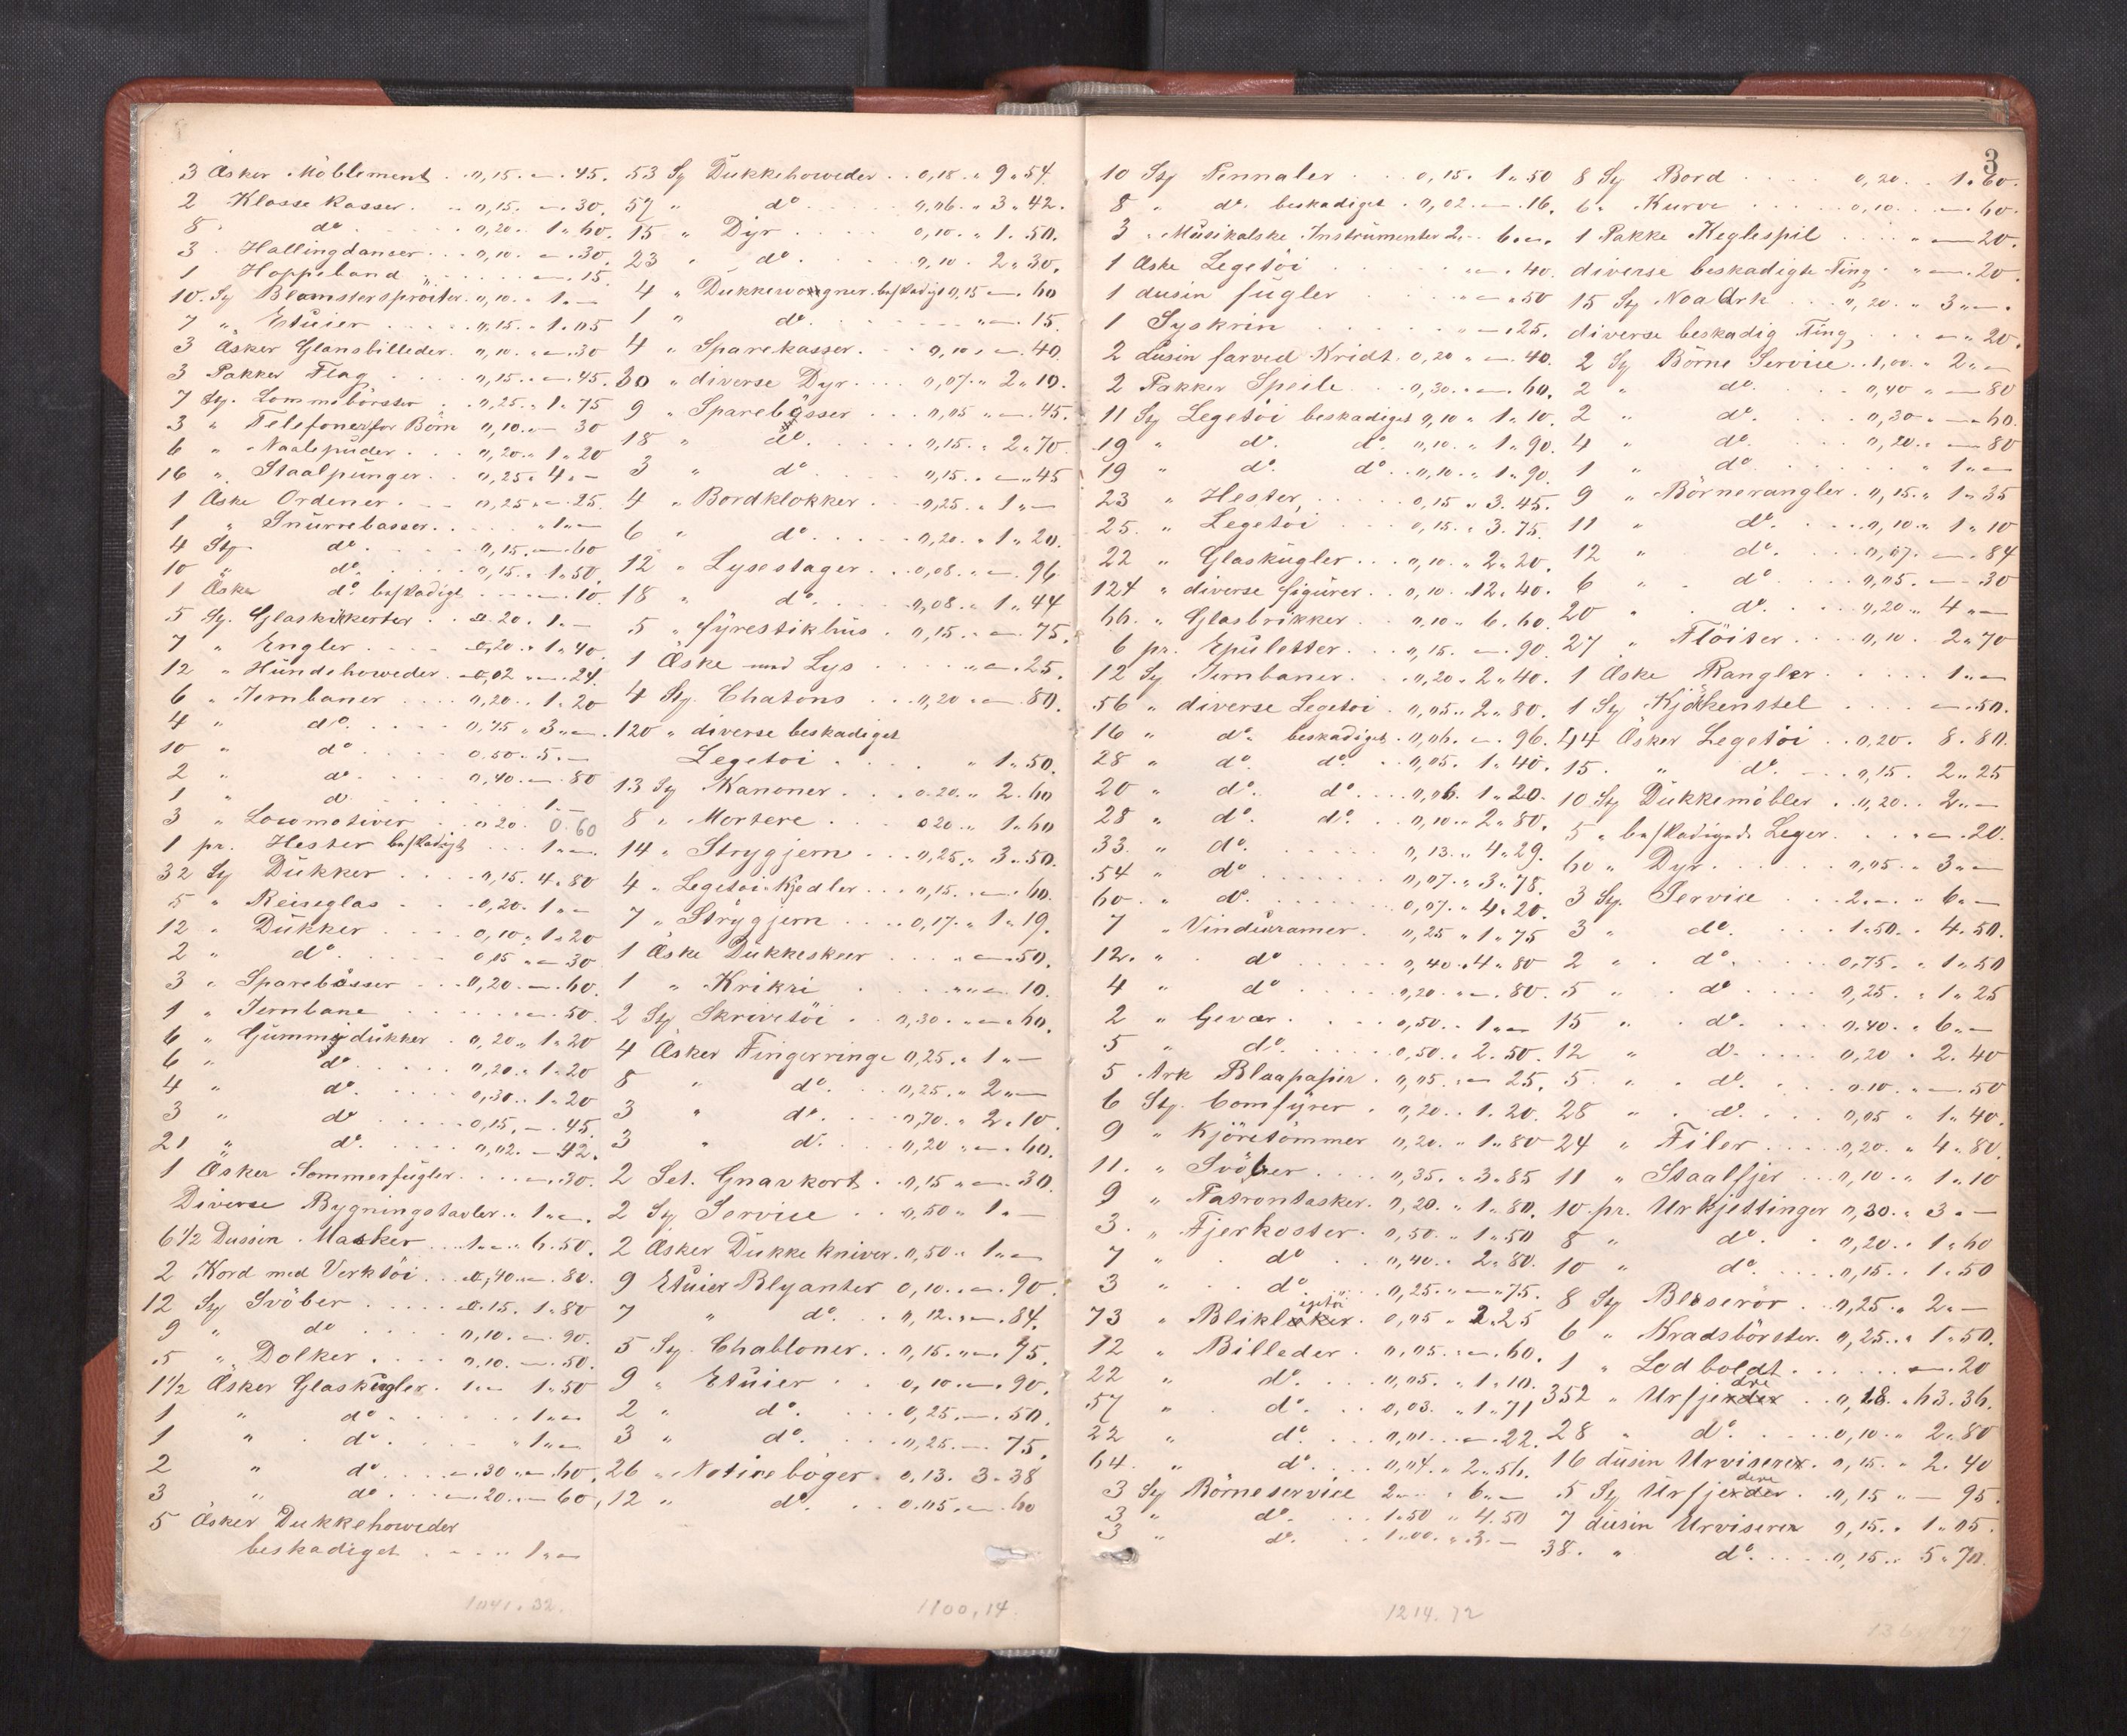 3 Æsker Möblement . . 0,15. " — . 45.
2 Klosse kasser . . . 0,15. — . 30.
8 " do . . . . 0,20 . . 1 " 60.
3 " Hallingdanser . . . 0,10. . — . 30.
1 Hoppeland . . . . . — . 15.
10. Sty Blomstersprøiter. 0,10. " 1. —
7 " Etüier . . . . 0,15. " 1.05
3 Æsker Glansbilleder. 0,10. " — . 30
3 Pakker Flag . . . . 0,15. . — . 45.
7 Sty. Lommebörster . . 0,25. " 1 " 75
3 " Telefoner for Börn 0,10. — 30
6 " Naalepüder . . . 0,20. " 1 " 20
16 " Staalpünger . . 0,25 " 4. —
1 Æske Ordener . . — 0,25 " — . 25.
1 " Snürrebasser. . . . " 1 " —
4 Sty do . . . . 0,15. — . 60
10 " do . . . . 0,15. " 1 " 50.
1 Æske do. beskadiget . . . . — . 10.
5 Sty. Glaskikkerter . . 0.20. 1. —
7 " Engler . . . . 0,20 . " 1 " 40.
12 " Hündehoveder . 0,02 " — . 24.
6 " Jernbaner . . . 0,20. . 1 " 20
4 " do . . . . 0,75 " 3 " —.
10 " do . . . . 0.50. . 5. —
2 " do . . . . 0,40. — . 80
1 " do . . . . . 1. —
3 " Locomotiver . . " 20. 0.60
1 pr. Hester beskadiget . . . 1 " —.
32 Sty Dükker . . . . 0,15. 4 " 80
5 " Reiseglas . . . 0,20. 1 " —
12 " Dükker . . . . 0,10. " 1 " 20
2 " do . . . . 0,15 " — 30
3 " Sparebösser . . . 0,20. — . 60.
1 " Jernbane . . . . . — . 50.
6 " Gümmidükker . 0,20 " 1 " 20
6 " do . . . . 0,20. " 1 " 20
4 " do. . . . 0,30. . 1 " 20
3 " do . . . . 0,15. — . 45.
21 " do. . . . 0,02. — 42.
1 Æsker Sommerfügler . . . — . 30.
Diverse Bygningstavler. " 1 " —.
6 1/2 Dussin Masker . . . 1. — " 6.50.
2 Kord med Verktöi . . 0,40. — . 80.
12 Sty Svöber . . . . 0.15. 1 " 80
9 " do . . . . 0,10. — . 90.
5 " Dolker . . . . 0.10. — . 50.
1 1/2 Æsker Glaskügler. 1. — 1 " 50
1 " do . . . . . 1 " —
1 " do . . . . " 1 " —
2 " do . . . . — . 30 " — . 60.
3 " do . . . — . 20. . — 60,
5 Æsker Dukkehoveder
beskadiget . . . . 1 " —
1041.32.
53 Sty Dükkehoveder . . 0,18. " 9 " 54.
57 " do . . . . 0,06. " 3 " 42.
15 " Dyr . . . . 0,10. " 1. 50.
23 " do . . . . 0,10. 2 " 30.
4 " Dükkevongner beskadiget 0,15 — . 60
1 " do . . . . . . " — . 15.
4 " Sparekasser. . . 0,10 " — . 40.
30 " diverse Dyr . . . 0,07. " 2 " 10.
9 " Sparebösser . . . 0,05 " — . 45.
18 " do. . . . 0,15. " 2 " 70.
3 " do . . . . 0,15. . — . 45
4 " Bordklokker . . . 0,25. " 1 " —
6 " do . . . . . 0,20. " 1 " 20.
12 " Lysestager . . . 0,08. " — . 96
18 " do. . . . 0,08. " 1 " 44
5 " Fyrestikhüs . . 0,15. " — . 75.
1 Æske med Lys . . . . " — . 25.
4 Sty. Chatons . . . 0,20 " — . 80.
120 " diverse beskadiget
Legetoi . . . . " 1 " 50.
13 Sty Kanoner . . . 0.20. " 2.60
8 " Mortere . . . 0 20. " 1 " 60
14 " Strygjern . . . 0,25. " 3 " 50.
4 " Legetoi Kjedler . . . 0,15. " — . 60.
7 " Strygjern . . . 0,17. " 1 " 19.
1 Æske Dükkeskeer . . . . " — . 50.
1 " Krikri . . . . " " — . 10.
2 Sty Skrivetöi . . 0,30. " — . 60.
4 Æsker Fingerringe 0,25. " 1 " —
8 " do. . . 0,25. " 2 " —
3 " do. . . . 0,70. " 2.10.
3 " do. . . 0,20 " — . 60.
2 Set. Gnavkort . 0,15 " — . 30.
2 Sty Service . . 0,50 " 1. —
2 Æsker Dükke kniver. 0,50. " 1 " —
9 Etüier Blyanter 0,10. . — . 90.
7 " do. . . 0,12. " — . 84.
5 Sty. Chabloner. . . 0,15. " — . 75.
9 " Etüier . . . 0,10. — . 90.
2 " do. . . . 0,25. — . 50.
3 " do. . . . 0,25. — . 75.
26 " Notiseböger . 0.13. 3 " 38
12 " do. . . 0.05. — . 60
1100,14.
3
10 Sty Pennaler . . . 0,15. 1 " 50
8 " do. beskadiget . 0,02. — . 16.
3 " Müsikalske Instrümenter 2. . . 6. —.
1 Æske Legetöi . . . . " — . 40.
1 düsin fügler . . . . " — " 50
1 Syskrin . . . . . " — . 25.
2 düsin farved Kridt. 0,20 " — . 40.
2 Pakker Speile . . . 0,30. " — . 60.
11 Sty Legetöi beskadiget 0,10 " 1 " 10.
19 " do. do. 0,10. " 1 " 90.
19 " do. do . . 0,10. " 1 " 90.
23 " Hester . . . . . 0,15 " 3.45.
25. " Legetöi . . . 0,15. " 3.75.
22 " Glaskügler . . . 0,10. " 2 " 20.
124 " diverse figürer . . 0,10. 12 " 40.
66. " Glasbrikker . . 0,10 " 6.60.
6 pr. Epületter. . . 0,15. — . 90.
12 Sty Jernbaner . . . 0,20. " 2 " 40.
56 " diverse Legetoi . 0,05. " 2 " 80.
16 " do. beskadiget. . 0,06. — . 96.
28 " do. do. . . 0,05. 1 " 40.
20 " do. do. . . . 0,06. 1 " 20.
28 " do. do. . . 0,10. " 2 " 80.
33. " do. . . . . . 0,13. " 4 " 29.
54 " do . . . . . . 0,07. " 3 " 78.
60. " do. . . . . . 0,07. " 4 " 20.
7 " Vindüsramer . 0,25 " 1 " 75
12. " do . . . . . 0,40. " 4 " 80
4 " do . . . . 0,20. " — . 80.
2 " Gevær . . . . 0,50. . 1 " —
5 " do. . . . . 0,50. " 2.50.
5 Ark Blaapapir . 0,05. — 25.
6 Sty. Comfyrer . 0,20. . 1. 20.
9 " Kjöretömmer 0,20. " 1 " 80
11. " Svöber . . . 0,35. " 3 " 85
9 " Patrontasker. 0,20. " 1 " 80.
3. " Fjerkoster . 0,50. " 1 " 50
7 " do . . 0,40. " 2 " 80.
3 " do. . . . 0,25. " — . 75.
73 " Bliklegetøi . 0,05 " 2.25
12 " Billeder . 0,05. " — . 60.
22 " do. . . 0,05. " 1 " 10.
57 " do. . . 0,03. " 1 " 71
22 " do. . . . 0,01. . — . 22.
64. " do. . . . 0,04. " 2 " 56.
3 Sty Börneservice 2. — . " 6 " —
3 " do. . . . 1.50 " 4.50
3 " do. . . . 1.00. " 3. —
1214.72
8 Sty Bord . . . . 0,20. . 1 " 60.
6 " Kurve . . . . . 0,10. . . — . 60.
1 Pakke Keglespil . . . . " — 20.
diverse beskadigte Ting . . " — . 20.
15 Sty Noa Ark . . . 0,20. " 3 " —.
diverse beskadig Ting, . . . — " 20.
2 Sty Börne Service . . 1,00. " 2 " —
2 " do. . . . 0,40 " — 80
2 " do. . . . 0,30 " — . 60.
4 " do. . . . 0,20. " — 80
1 " do . . . . . " 1 " —
9 " Börnerangler . 0,15. " 1 " 35
11 " do. . . . . 0,10. " 1 " 10
12 " do. . . . 0,07. — . 84
6 " do . . . . 0,05. — . 30
20 " do. . . . 0,20 " 4 " —
27 " Flöiter . . . . 0,10. 2 " 70
1 Æske Rangler . . . . . 1 " —
1 Sty Kjökkenstel . . . . — . 50.
44 Æsker Legetöi . . 0,20. 8.80.
15. " do. . . . 0,15. 2 " 25
10 Sty Dükkemöbler . . 0,20. . 2 " —
5 " beskadigede Leger . . . " — . 20.
60 " Dyr . . . . . 0,05. " 3 " —
3 Sty. Service . . . 2. — . " 6. —
3 " do. . . . 1.50. . 4.50.
2 " do. . . . 0,75. " 1 " 50
5 " do . . . . 0,25. " 1 " 25
15 " do. . . . 0.40. " 6. —
12 " do. . . . . 0,20 " 2.40
5. " do. . . . 0.10. " — . 50
28 " do. . . . 0,05 " 1 " 40.
24 " Filer . . . . 0,20. " 4 " 80.
11 " Staalfjer . . . 0,10. " 1 " 10
10. pr. Urkjettinger 0,30. " 3. —
8 " do. . . 0,20. . 1 " 60
10 " do. . . . 0,15. . 1 " 50
8 Sty Blæserör . . 0,25. " 2. —
6 " Kradsbörster. 0,25. " 1 " 50.
1 " Lodboldt . . . . . — . 20
352 " Urfjedre . . 0,18. " 63.36.
28 " do. . . . . 0,10. " 2 " 80
16 düsin Urvisere . 0,15. " 2.40
5 Sty Urfjedre . . 0,15 " — 95.
7 düsin Urvisere 0,15. " 1 " 05.
38. " do. . . . 0,15. " 5 " 70.